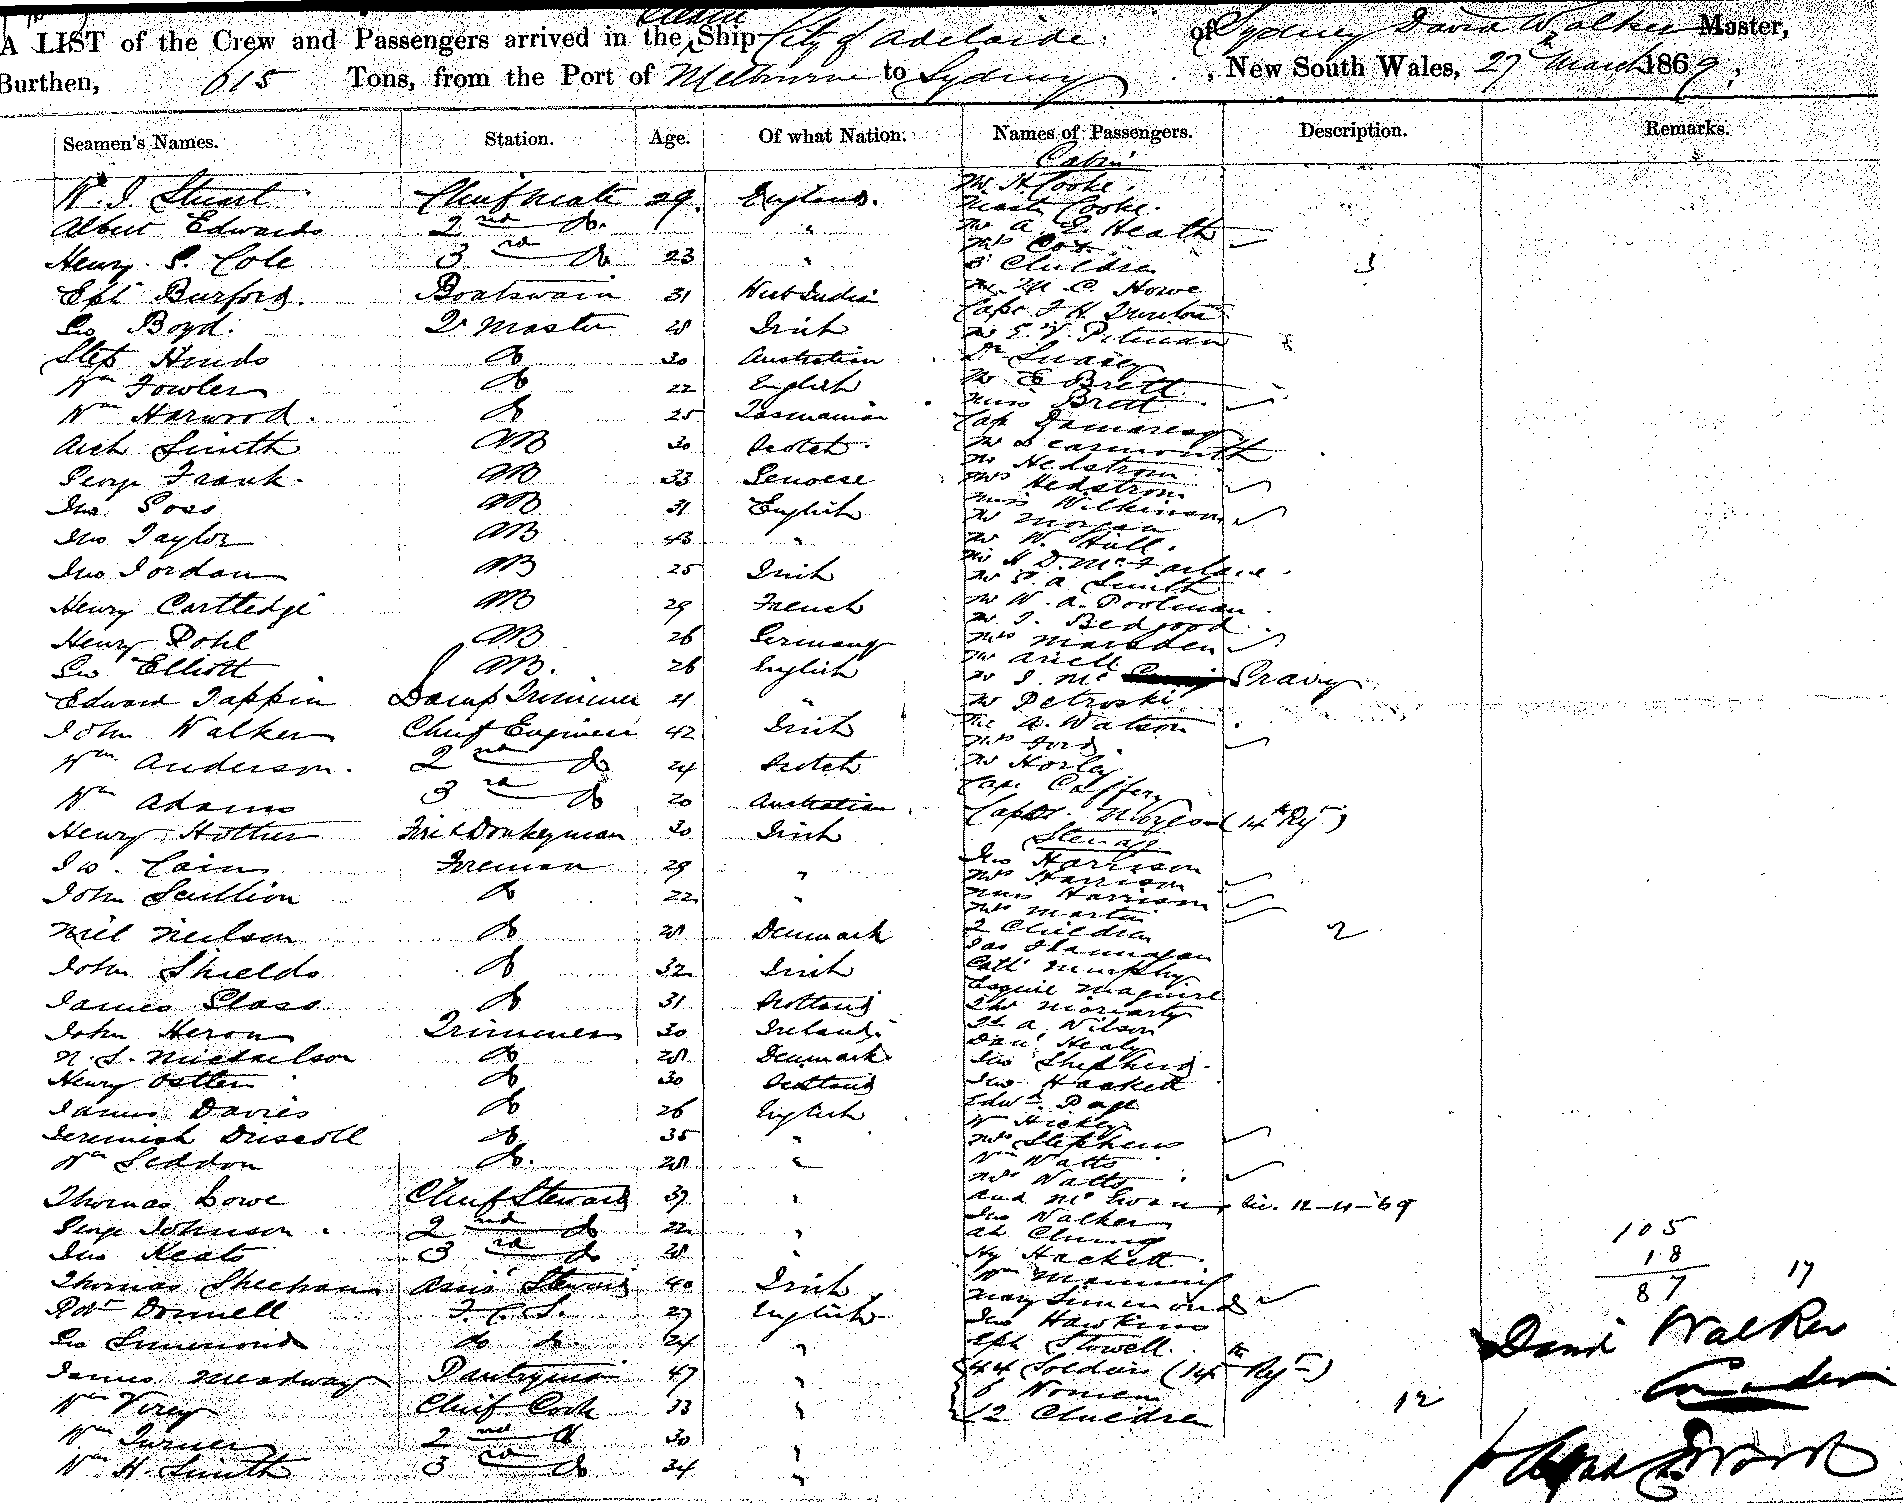 A LIST of the Crew and Passengers arrived in the Steam Ship City of Adelaide of Sydney David Walker Master,
Burthen, 615 Tons, from the Port of Melbourne to Sydney, New South Wales, 27th March 1869,
Seamen's Names. Station. Age. Of what Nation. Names of Passengers. Description. Remarks.
Cabin
W. J. Stuart Chief Mate 29 England. Mr H Cooke.
Mast Cooke.
Albert Edwards 2nd Do. " Mr A. E. Heath
Mrs Cox
Henry S. Cole 3rd Do 23 " 3 Children 3
Burford. Boatswain 31 West Indian Mr M C. Howe
Geo Boyd. Qr Master 28 Irish Capt J H
Mr E. V. Pitman
Step Hinds Do 30 Australian Dr
Wm Fowler Do 22 English Mr E Brett
Miss Brett
Wm Harwood. Do 25 Tasmanian Cap Dumaresq
Arch Smith AB 30 Scotch Mr Learmonth
Mr Hedstrom
George Frank. AB 33 Genoese Mrs Hedstrom
Miss Wilkinson
Jno Goss AB 31 English Mr Morgan
Jno Taylor AB 43 " Mr W. Hull.
Jno Jordan AB 25 Irish Mr H D. McFarlane
Mr S. A Smith
Henry Cartledge AB 29 French Mr W. A. Poolman
Mr J. Bedgood
Henry Pohl AB 26 Germany Mrs Marsden
Geo Elliott AB. 26 English Mr Ariell
Mr J. Mc Gravy
Edward Tappin Lamp Trimmer 21 " Mr Petroski
John Walker Chief Engineer 42 Irish Mr A. Watson
Mrs Ford
Wm Anderson. 2nd Do 24 Scotch Mr Horley
Cap. Caffery
Wm Adams 3rd Do 20 Australian Capt (14th Rgt)
Henry Hother Fire & Donkeyman 30 Irish Steerage
Jno Harrison
Jno. Cain Foreman 29 " Mrs Harrison
John Scullion Do 22 " Miss Harrison
Mrs Martin
Niel Neilson Do 28 Denmark 2 Children 2
Jas Flannagan
John Shields Do 32 Irish Cath Murphy
Maguire
James Glass Do 31 Scotland Moriarty
John Heron Trimmer 30 Ireland. A Wilson
N. S. Michaelson Do 28 Denmark Danl Healy
Jno Shepherd.
Henry Do 30 Scotland Jno Hackett
James Davies Do 26 English Edwd. Page
W Hickey
Jeremiah Driscoll Do 35 " Mrs Stephens
Wm Seddon Do. 28 " Wm Watts
Mrs Watts
Thomas Lowe Chief Steward 37 " And McEwan 12-11-69
Jno Walker
George Johnson. 2nd Do 22 " Ah Chung
Jno Keats 3rd Do 28 " Hy Hackett
Thomas Sheehan Assis Steward 40 Irish Wm Manning
Robt Donnell F. C. S. 27 English Mary Simmonds
Jno Hawkins
Geo Simmonds do do. 24 " Stowell.
James Meadway Pantryman 47 " 44 Soldiers (14th Rgt)
6 Women
Wm Virey Chief Cook 33 " 12 Children 12
Wm Turner 2nd Do 30 "
Wm H. Smith 3rd Do 34 "
105
18
87 17
David Walker
Commander